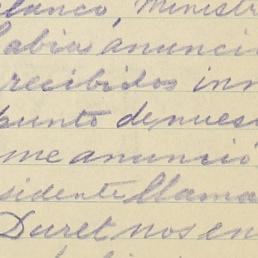 blanco, Ministr
abias anuncio
recibidos inn
punto de nues
me anunció
sidente llama
Duret nos en